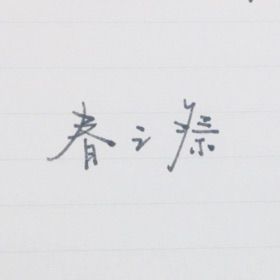 春之祭